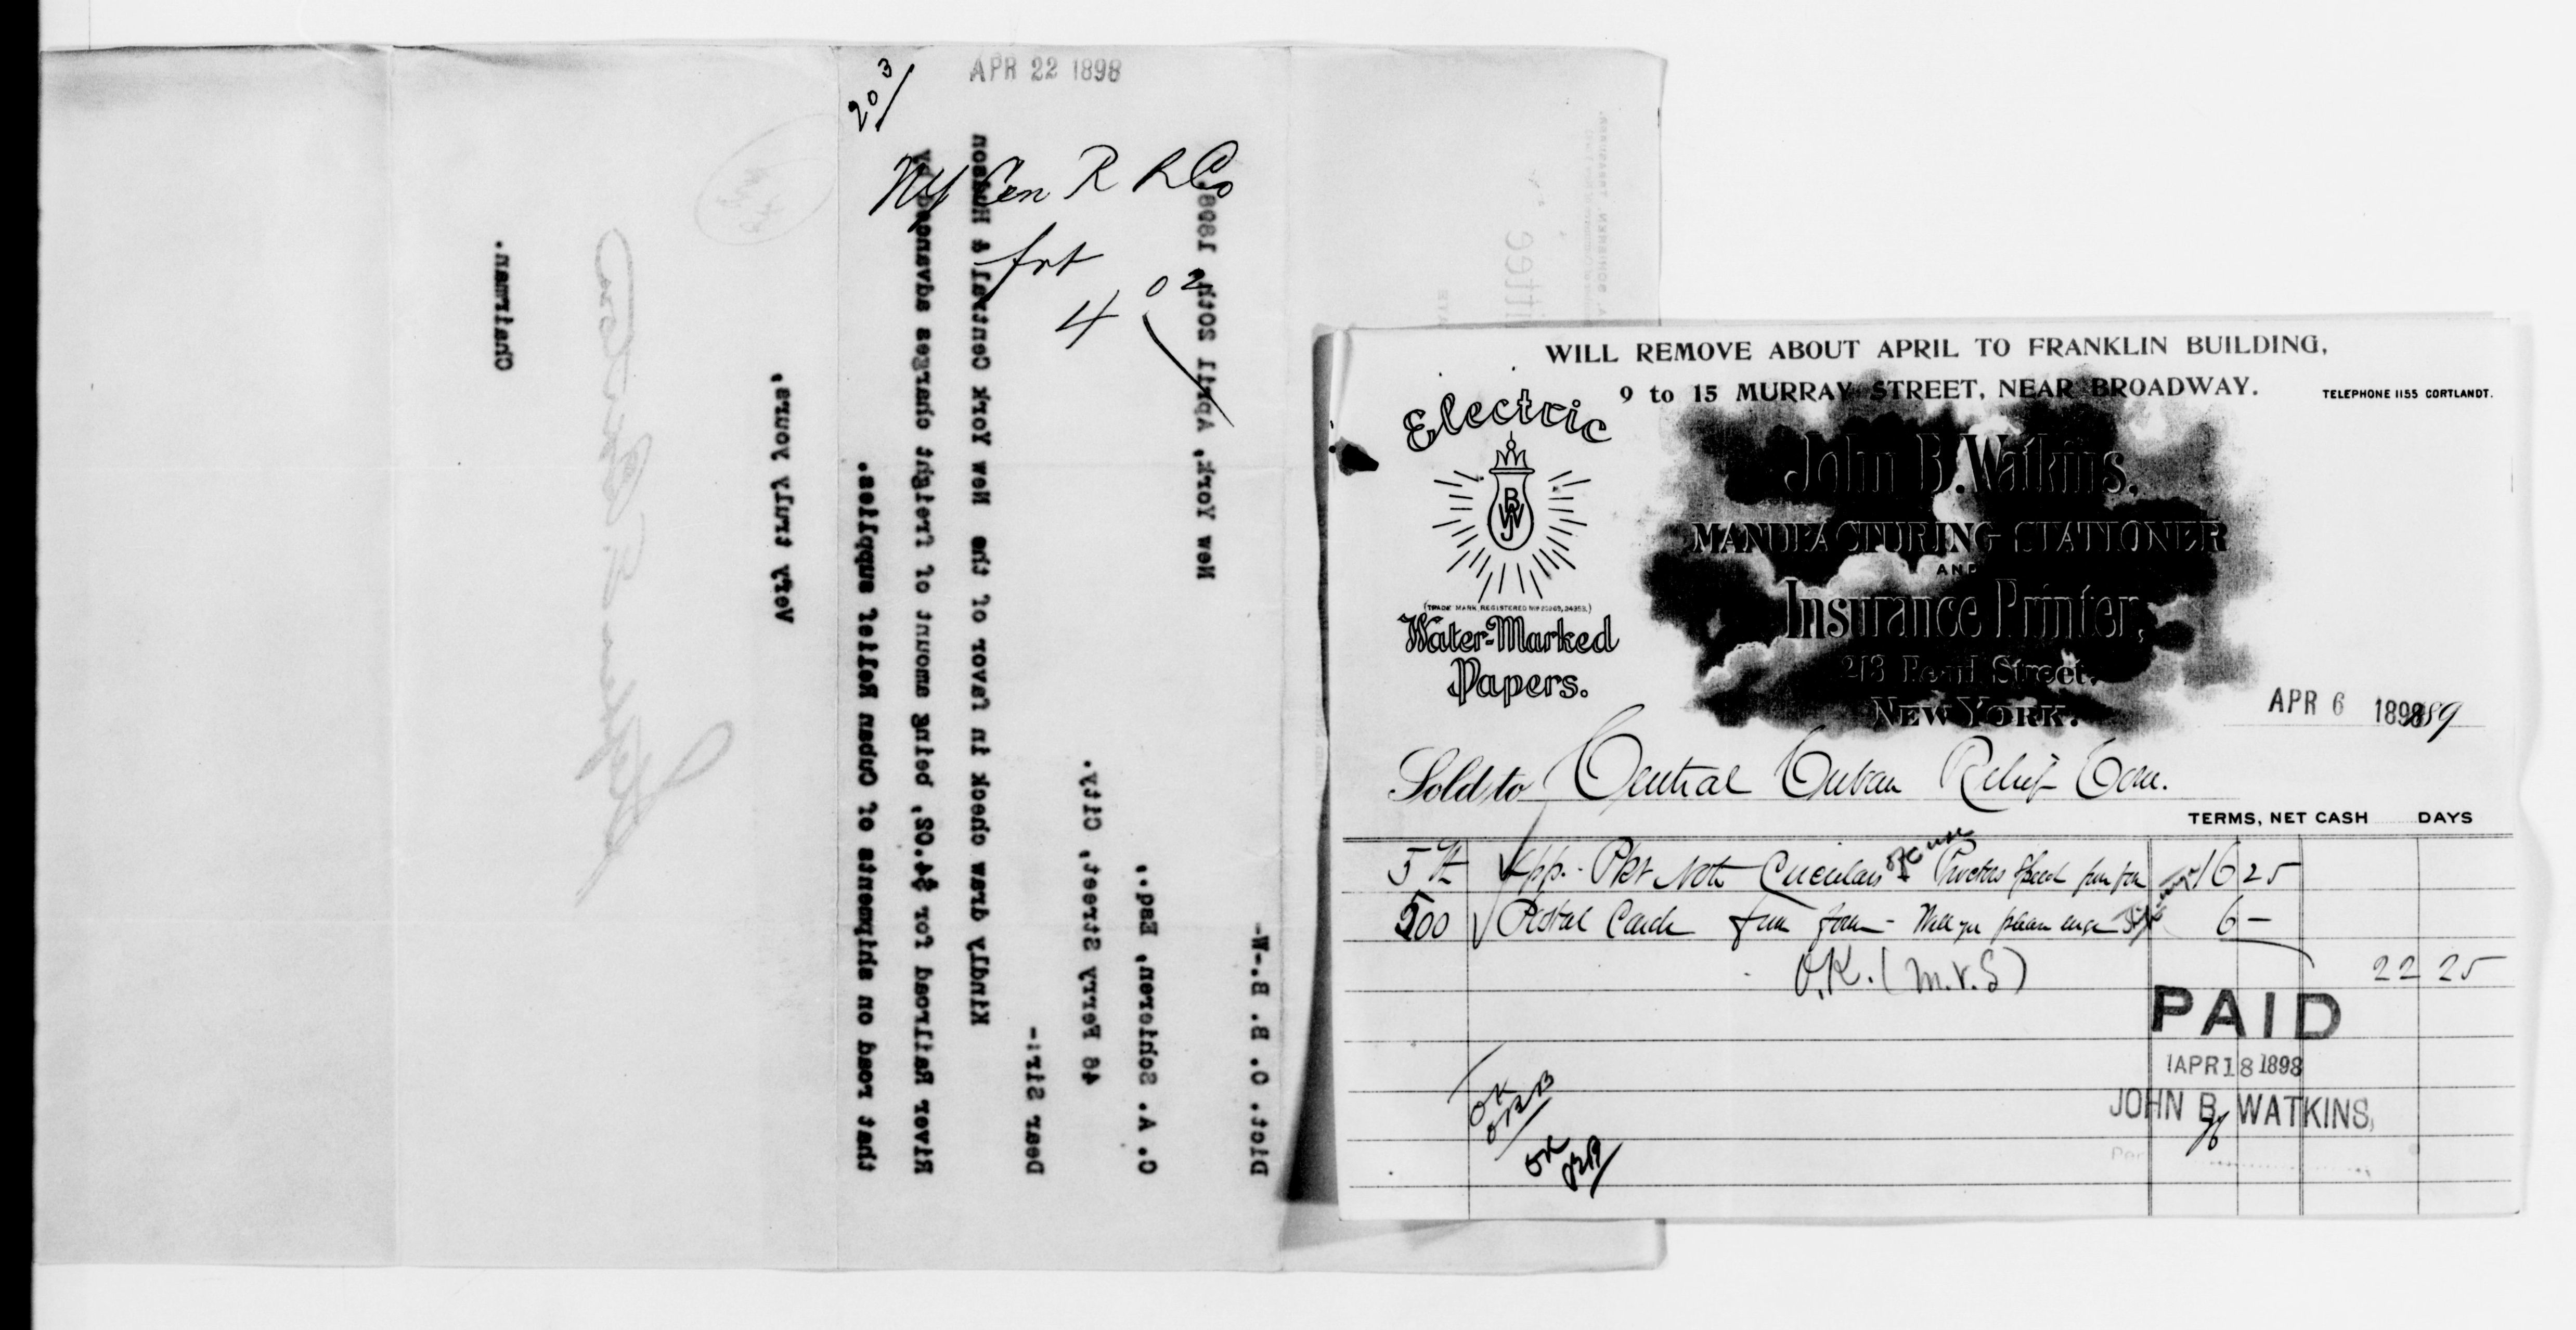 APR 22 1898
20 3/
NY Cen R R Co
frt
4 02
Dict. O. B. B.-W-
New York, April 20th, 1898.
C. A. Schieren, Esq.,
46 Ferry Street, City.
Dear Sir:-
Kindly draw check in favor of the New York Central & Hudson
River Railroad for $4.02, being amount of freight charges advanced by
that road on shipments of Cuban Relief supplies.
Very truly yours,
Chairman.
A. SCHIEREN, TREASURER.
WILL REMOVE ABOUT APRIL TO FRANKLIN BUILDING,
9 to 15 MURRAY STREET, NEAR BROADWAY.
TELEPHONE 1155 CORTLANDT.
Electric
JBW
(TRADE MARK REGISTERED
Water-Marked
Papers.
John B. Watkins,
MANUFACTURING STATIONER
AND
Insurance Printer,
213 Pearl Street,
NEW YORK.
APR 6 1898 189
Sold to Central Cuban Relief Com.
TERMS, NET CASH DAYS
5 M App. Pkt Note Circulars Proctors Speech 16 25
500 Postal Cards 6 —
22 25
O.K. (M.V.S)
PAID
APR 18 1898
JOHN B. WATKINS,
Per
OK
OBB
OK